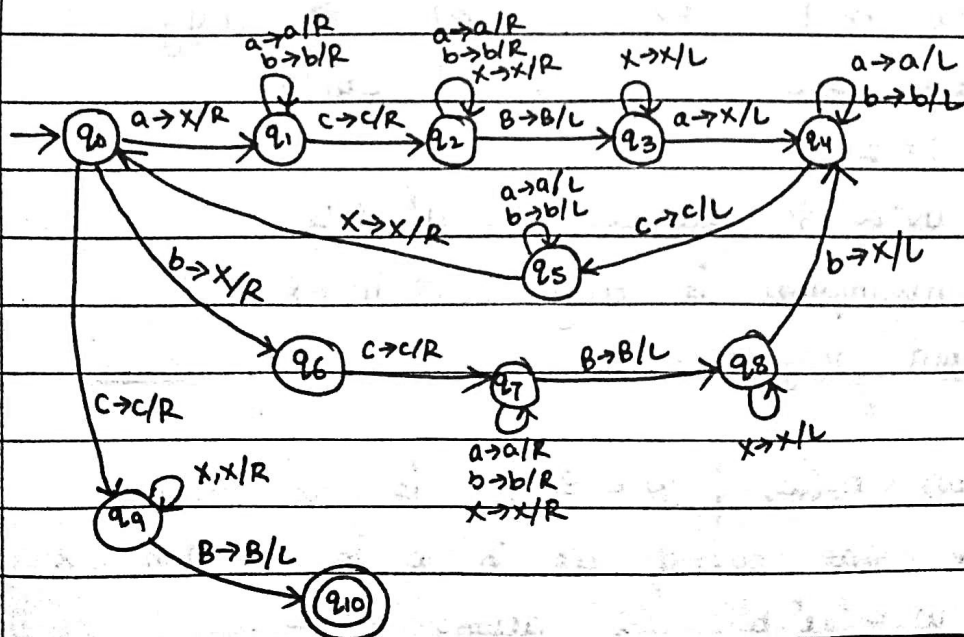 a→a/R
b→b/R
a→a/R
b→b/R
x→x/R
x→x/L
a→a/L
b→b/L
q0
a→x/R
q1
c→c/R
q2
B→B/L
q3
a→x/L
q4
a→a/L
b→b/L
x→x/R
q5
c→c/L
b→x/R
b→x/L
q6
c→c/R
q7
B→B/L
q8
c→c/R
a→a/R
b→b/R
x→x/R
x→x/L
x,x/R
q9
B→B/L
q10